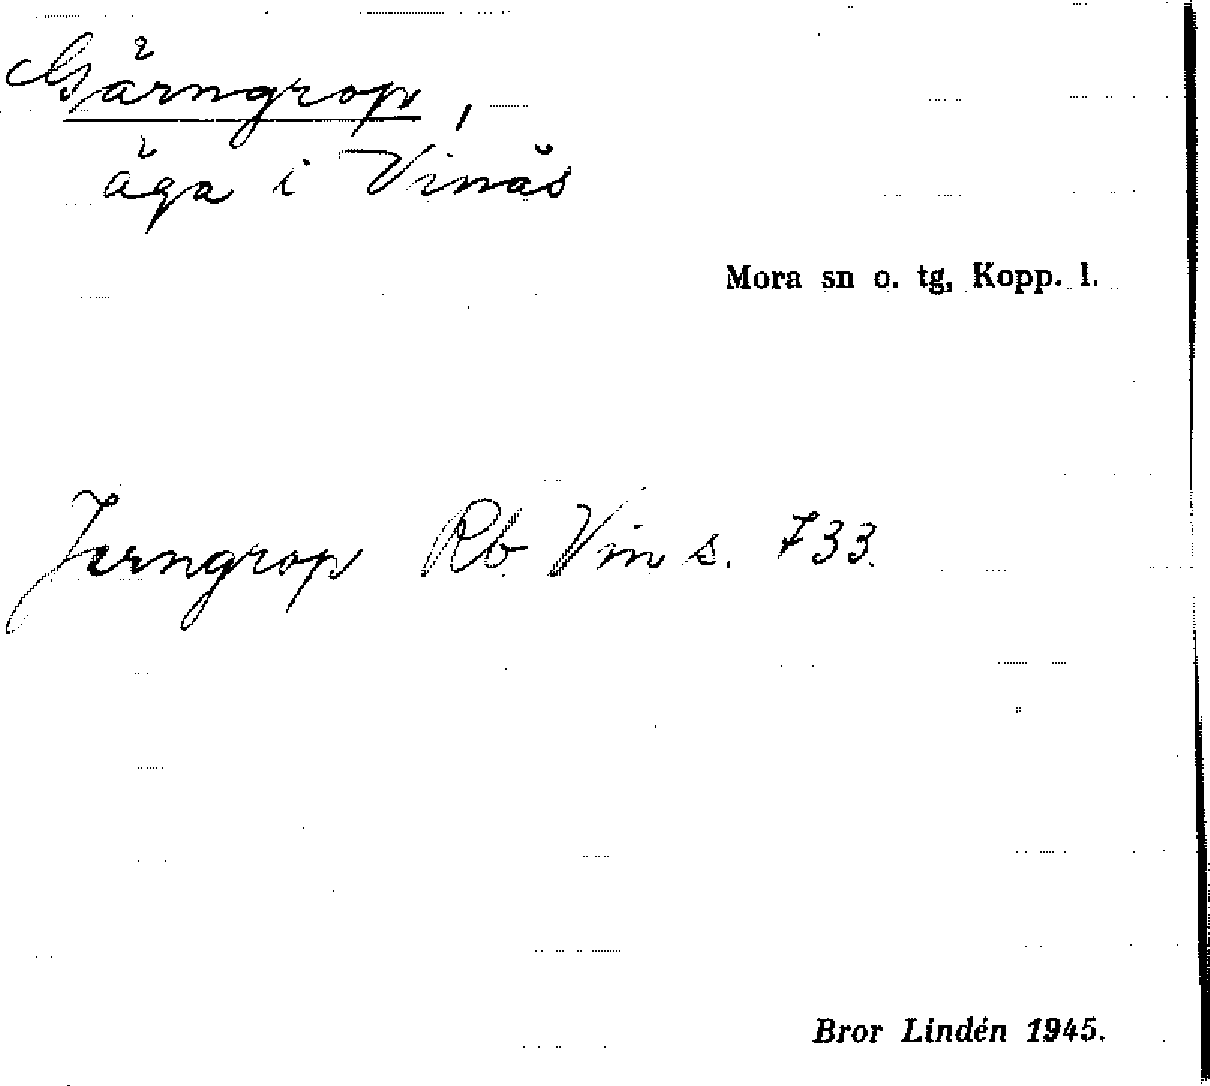 Gärngrop,
äga i Vinäs
Mora sn o. tg, Kopp. l.
Jerngrop Rb Vin s. 733.
Bror Lindén 1945.